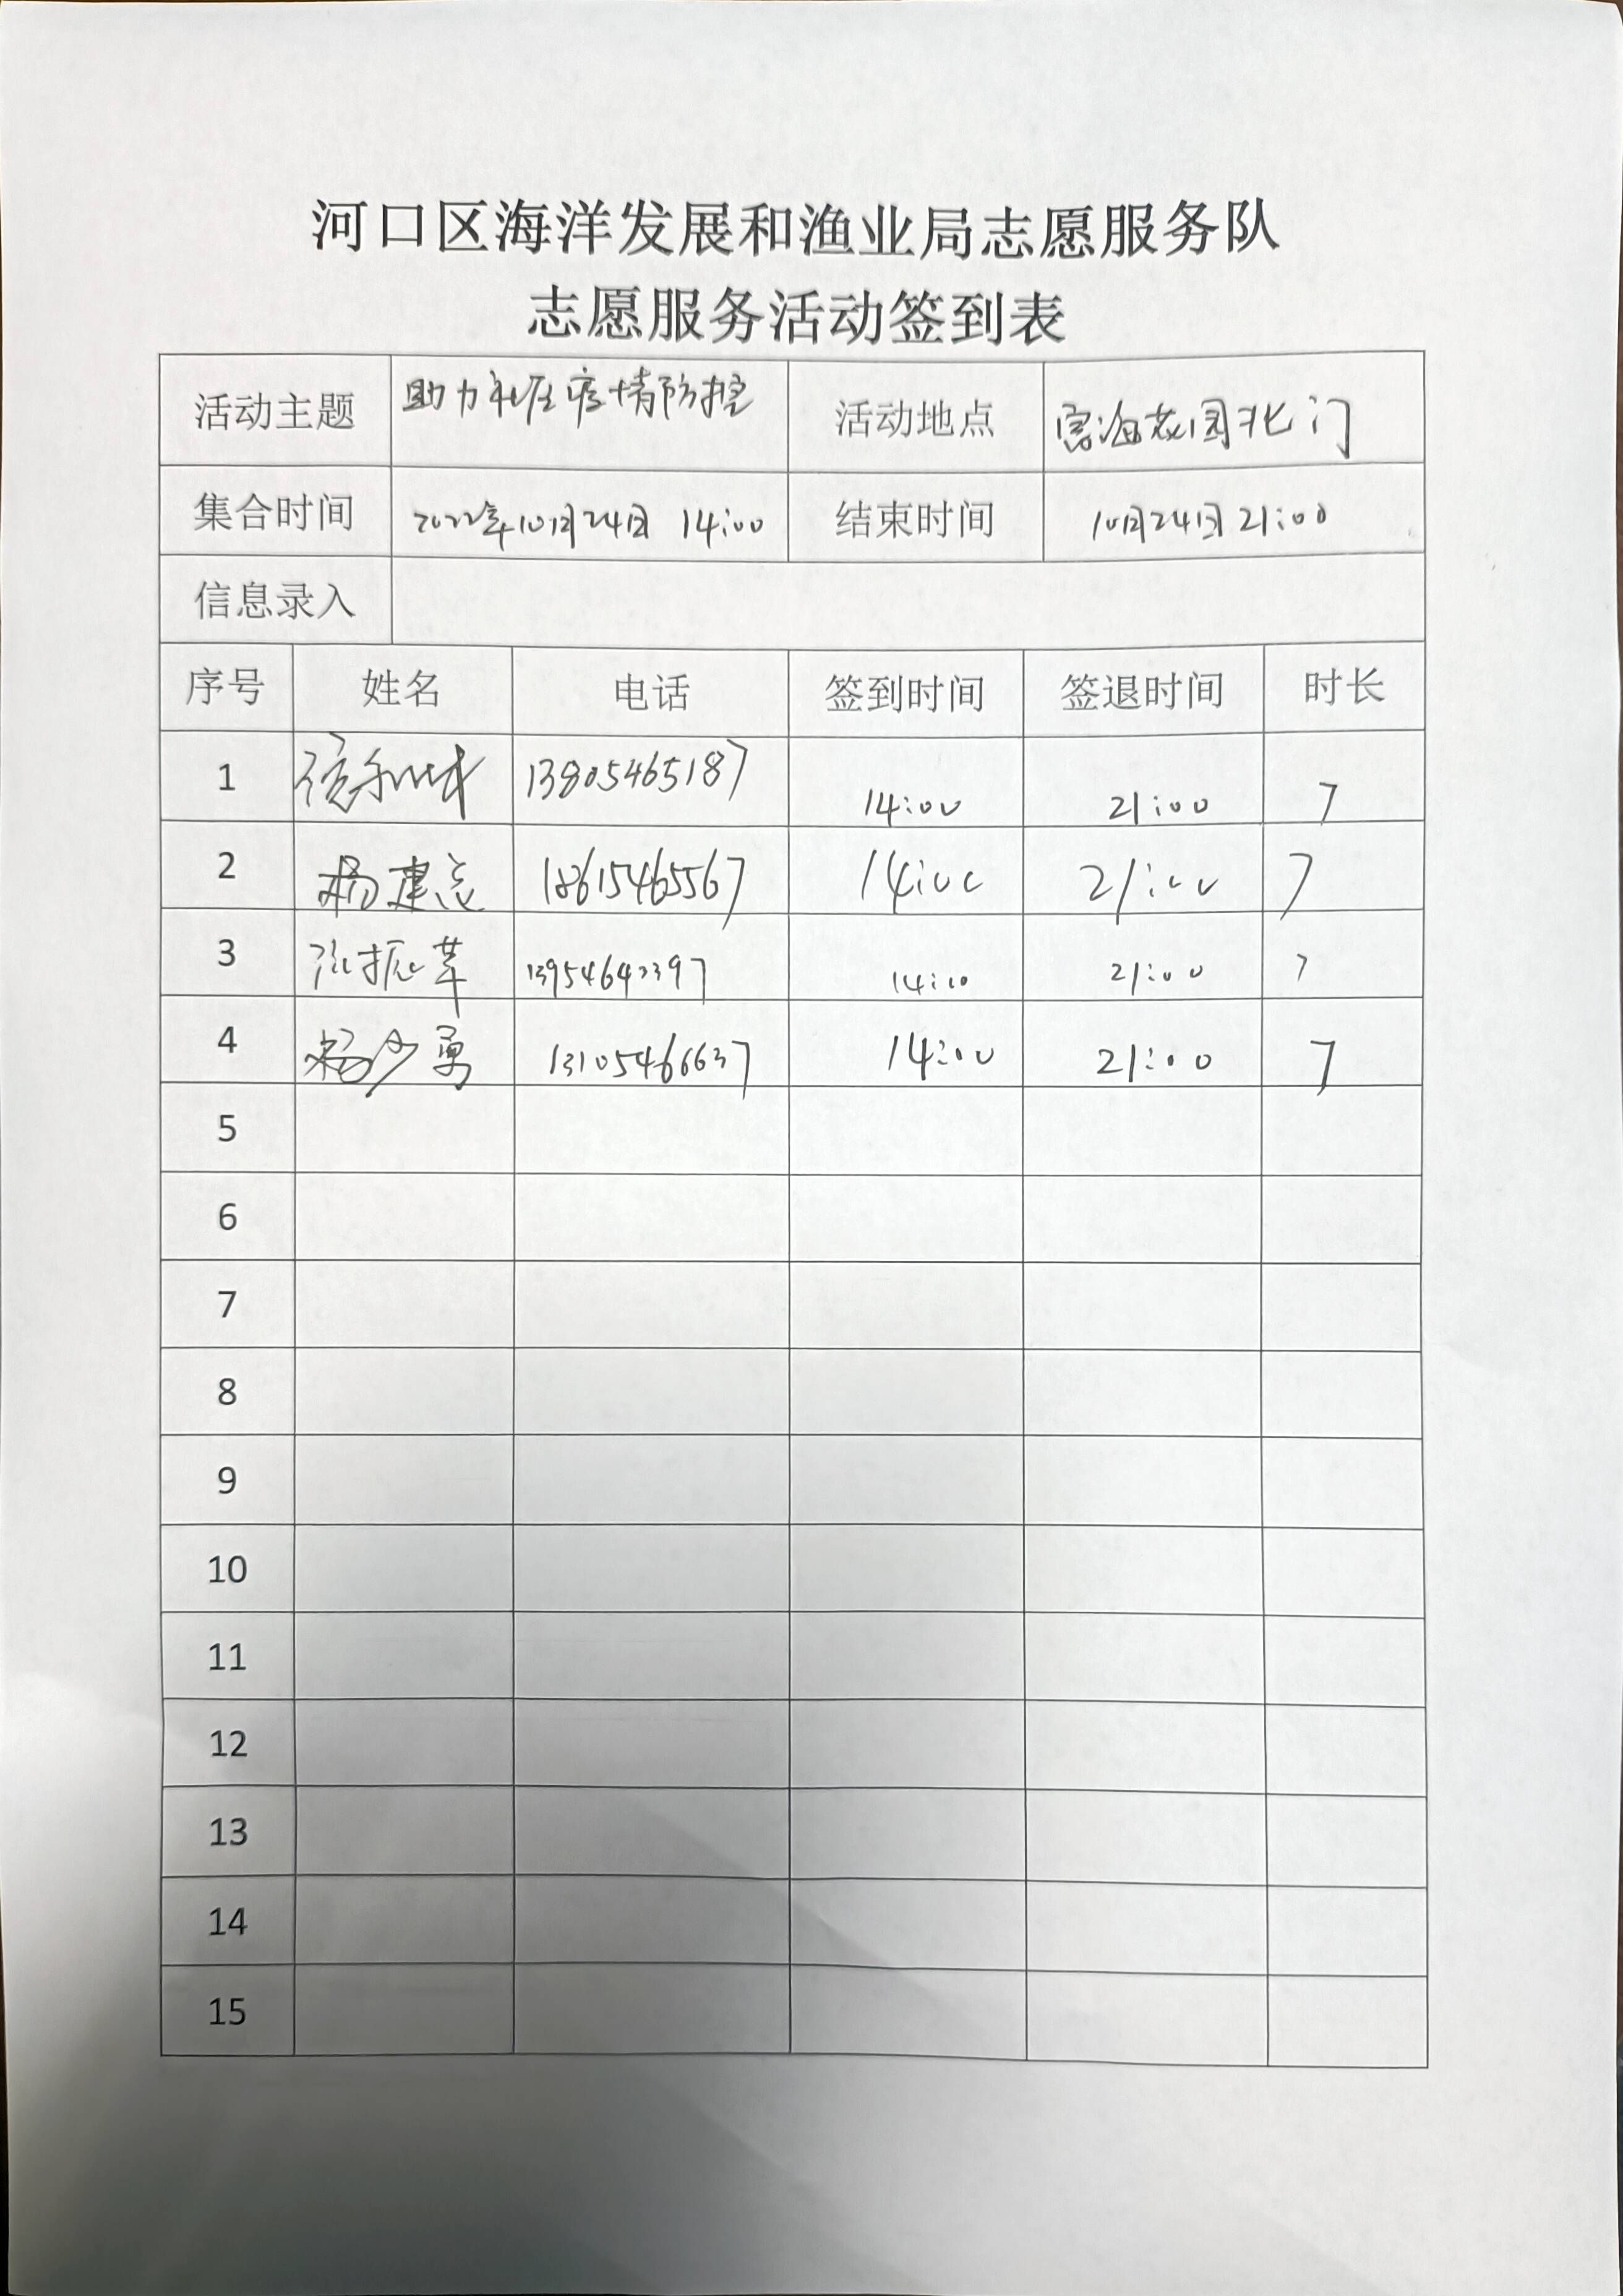 河口区海洋发展和渔业局志愿服务队
志愿服务活动签到表
活动主题 助力社区疫情防控 活动地点 海花园北门
集合时间 2022年10月24日 14:00 结束时间 10月24日 21:00
信息录入
序号 姓名 电话 签到时间 签退时间 时长
1 13805465187 14:00 21:00 7
2 杨建志 18615465567 14:00 21:00 7
3 张振苹 13954642397 14:00 21:00 7
4 杨少勇 13105466637 14:00 21:00 7
5
6
7
8
9
10
11
12
13
14
15